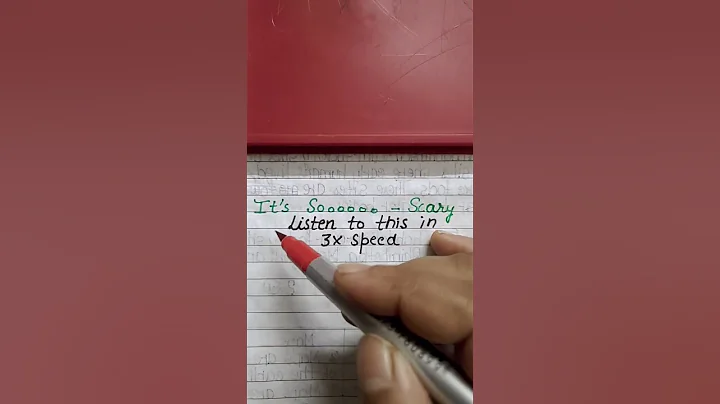 It's Soooooo - Scary
Listen to this in
3x speed